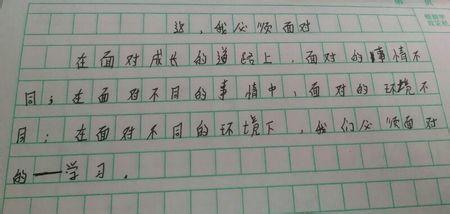 这,我必须面对
在面对成长的道路上,面对的事情不
同;在面对不同的事情中,面对的环境不
同;在面对不同的环境下,我们必须面对
的——学习.